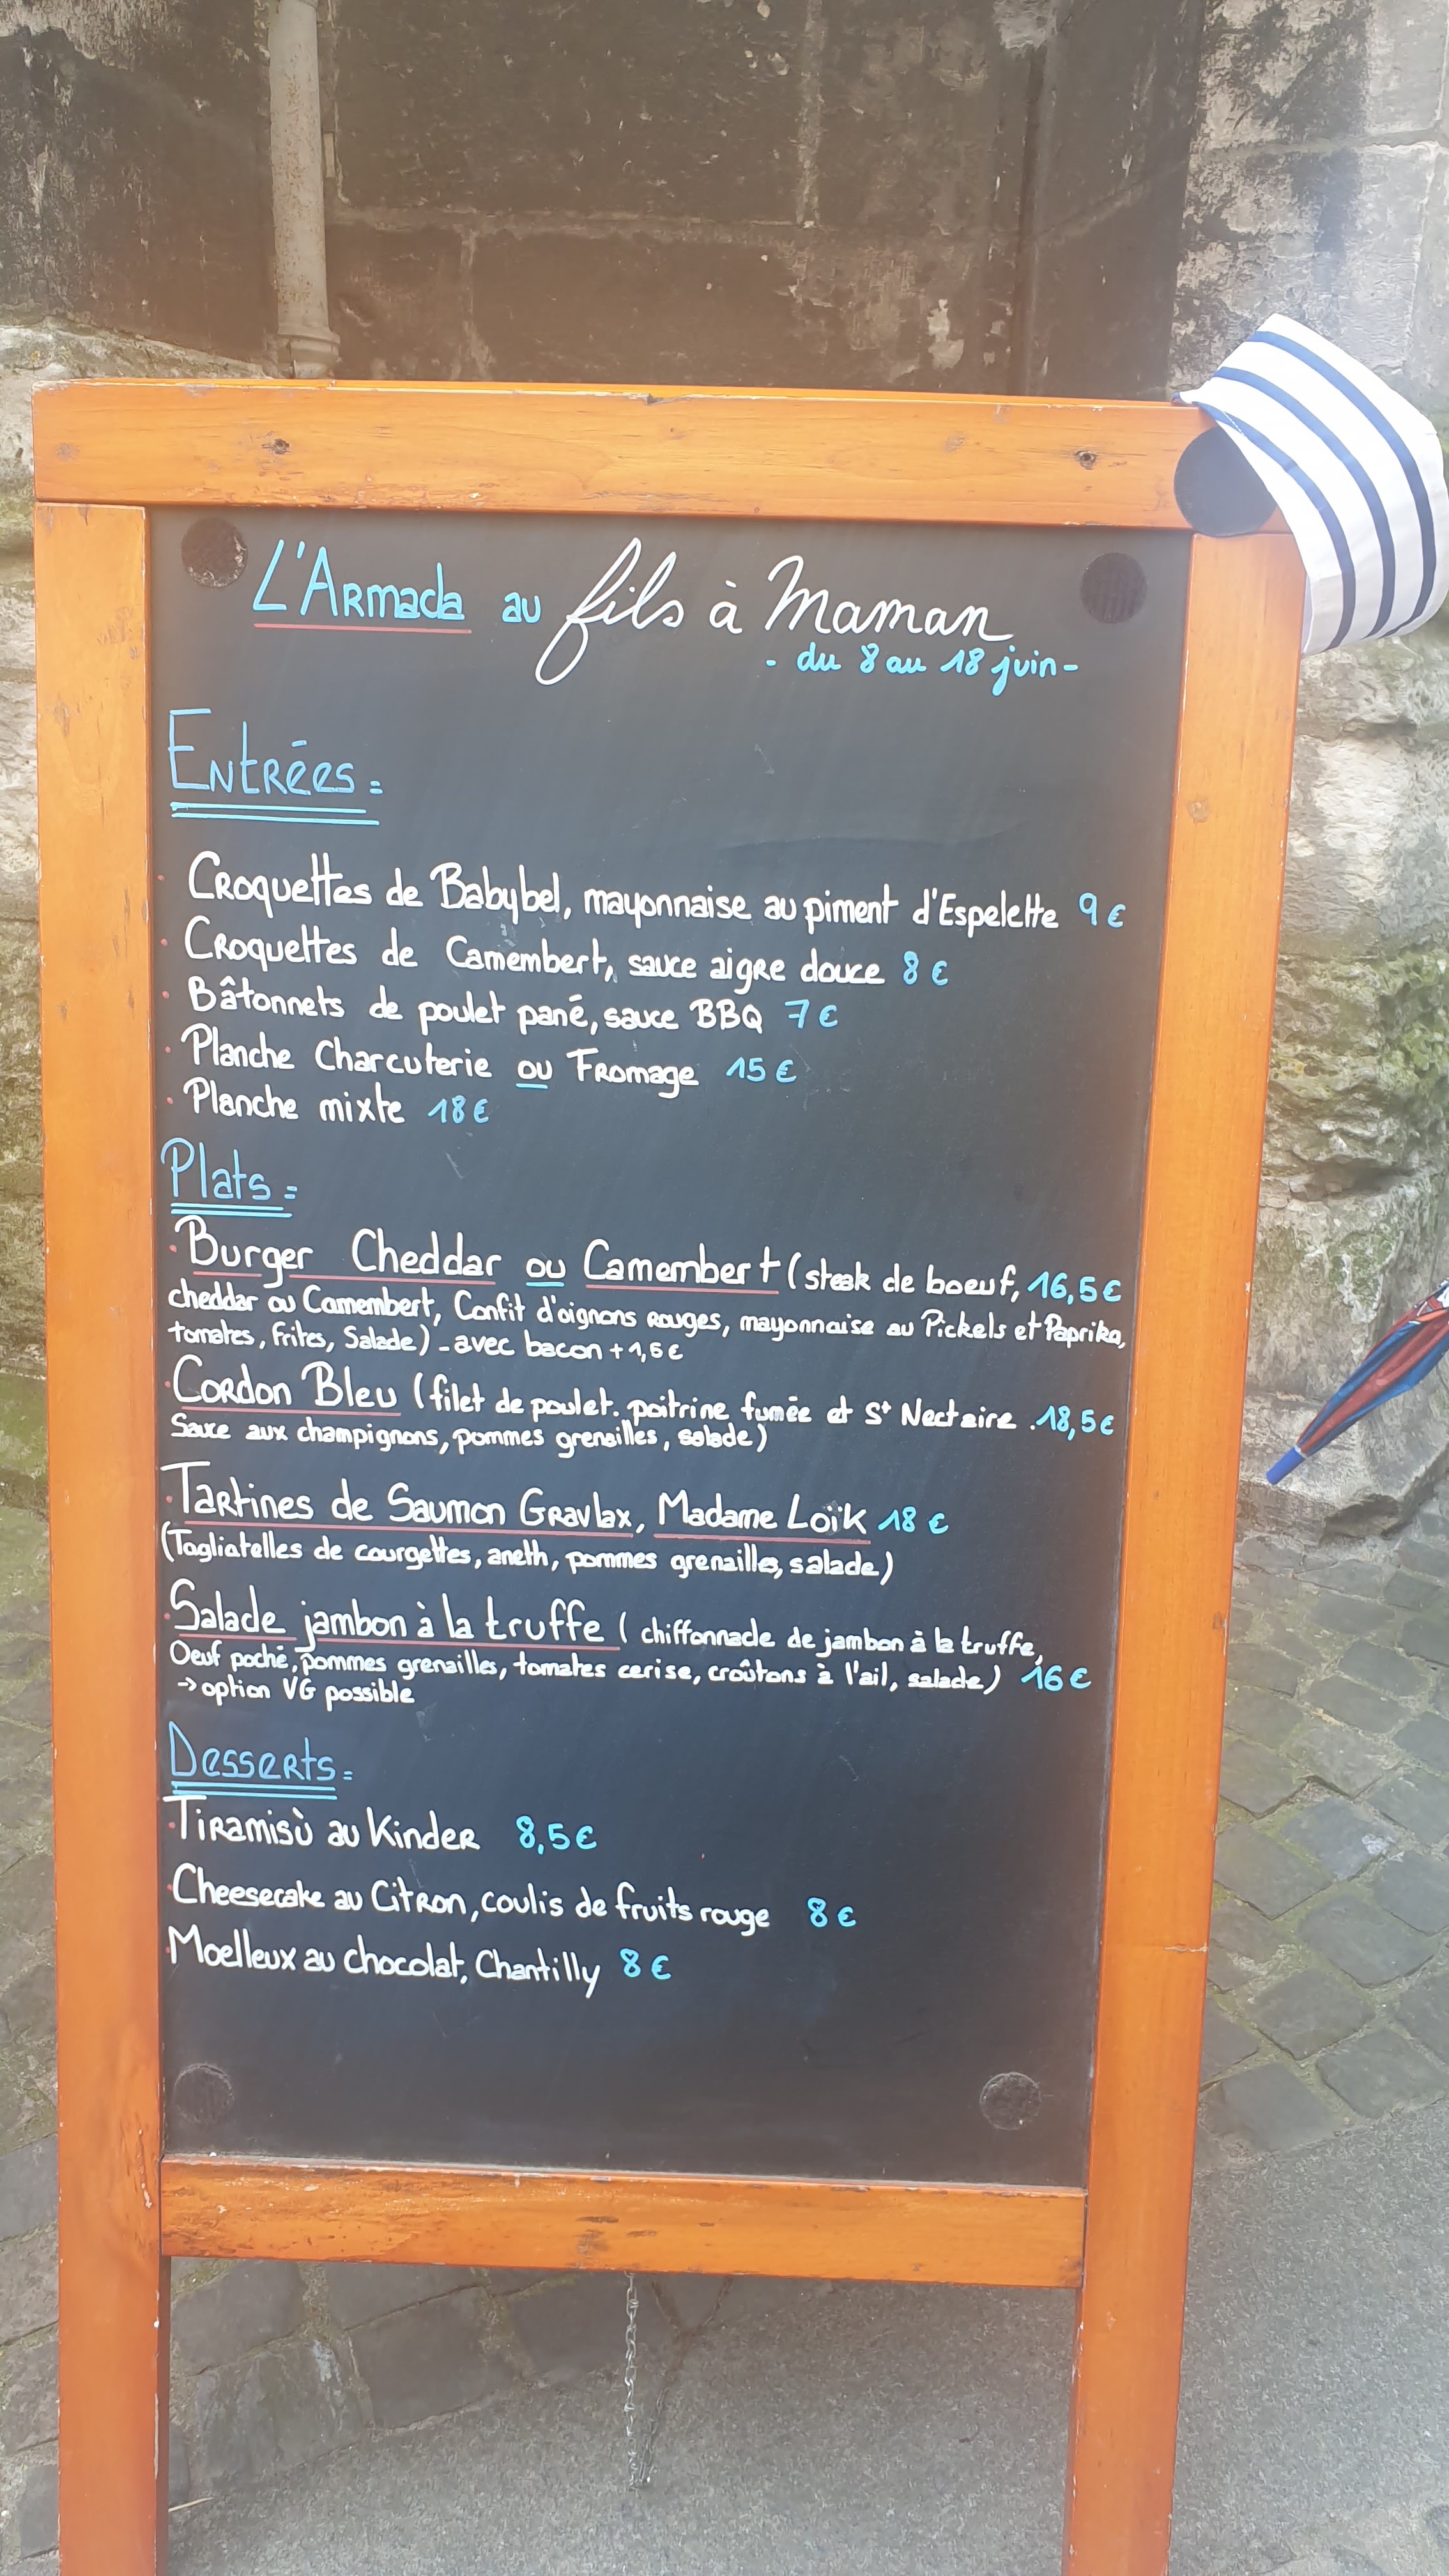 L'Armada au fils à Maman
- du 8 au 18 juin -
Entrées :
· Croquettes de Babybel, mayonnaise au piment d'Espelette 9 €
· Croquettes de Camembert, sauce aigre douce 8 €
· Bâtonnets de poulet pané, sauce BBQ 7 €
· Planche Charcuterie ou Fromage 15 €
· Planche mixte 18 €
Plats :
· Burger Cheddar ou Camembert (steak de boeuf, 16,5 €
cheddar ou Camembert, Confit d'oignons rouges, mayonnaise au Pickels et Paprika,
tomates, frites, Salade) - avec bacon + 1,5 €
· Cordon Bleu (filet de poulet. poitrine fumée et St Nectaire . 18,5 €
Sauce aux champignons, pommes grenailles, salade)
· Tartines de Saumon Gravlax, Madame Loïk 18 €
(Tagliatelles de courgettes, aneth, pommes grenailles, salade)
· Salade jambon à la truffe ( chiffonnade de jambon à la truffe,
Oeuf poché, pommes grenailles, tomates cerise, croûtons à l'ail, salade) 16 €
-> option VG possible
Desserts :
· Tiramisù au Kinder 8,5 €
· Cheesecake au Citron, coulis de fruits rouge 8 €
· Moelleux au chocolat, Chantilly 8 €